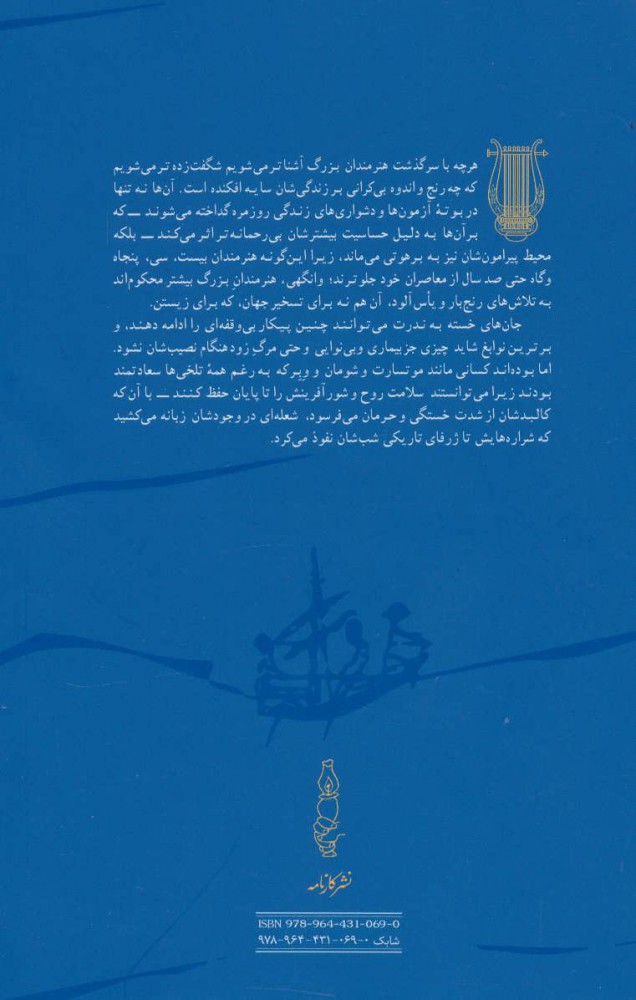 هرچه با سرگذشت هنرمندان بزرگ آشناتر می‌شویم شگفت‌زده‌تر می‌شویم
که چه رنج و اندوه بی‌کرانی بر زندگی‌شان سایه افکنده است. آن‌ها نه تنها
در بوتهٔ آزمون‌ها و دشواری‌های زندگی روزمره گداخته می‌شوند — که
بر آن‌ها به دلیل حساسیت بیشترشان بی‌رحمانه‌تر اثر می‌کند — بلکه
محیط پیرامون‌شان نیز به برهوتی می‌ماند، زیرا این‌گونه هنرمندان بیست، سی، پنجاه
و گاه حتی صد سال از معاصران خود جلوترند؛ وانگهی، هنرمندان بزرگ بیشتر محکوم‌اند
به تلاش‌های رنج‌بار و یأس‌آلود، آن هم نه برای تسخیر جهان، که برای زیستن.
جان‌های خسته به ندرت می‌توانند چنین پیکار بی‌وقفه‌ای را ادامه دهند، و
برترین نوابغ شاید چیزی جز بیماری و بی‌نوایی و حتی مرگ زودهنگام نصیب‌شان نشود.
اما بوده‌اند کسانی مانند موتسارت و شومان و وبر که به رغم همهٔ تلخی‌ها سعادتمند
بودند زیرا می‌توانستند سلامت روح و شور آفرینش را تا پایان حفظ کنند — با آن که
کالبدشان از شدت خستگی و حرمان می‌فرسود، شعله‌ای در وجودشان زبانه می‌کشید
که شراره‌هایش تا ژرفای تاریکی شب‌شان نفوذ می‌کرد.
نشر کارنامه
ISBN 978-964-431-069-0
شابک ۰-۰۶۹-۴۳۱-۹۶۴-۹۷۸